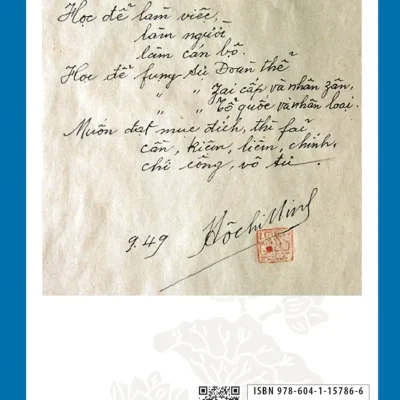 Học để làm việc,
làm người,
làm cán bộ.
Học để fụng sự Đoàn thể
" " zai cấp và nhân zân,
" " Tổ quốc và nhân loại.
Muốn đạt mục đích, thì fải
cần, kiệm, liêm, chính,
chí công, vô tư.
9.49 Hồ Chí Minh
ISBN 978-604-1-15786-6